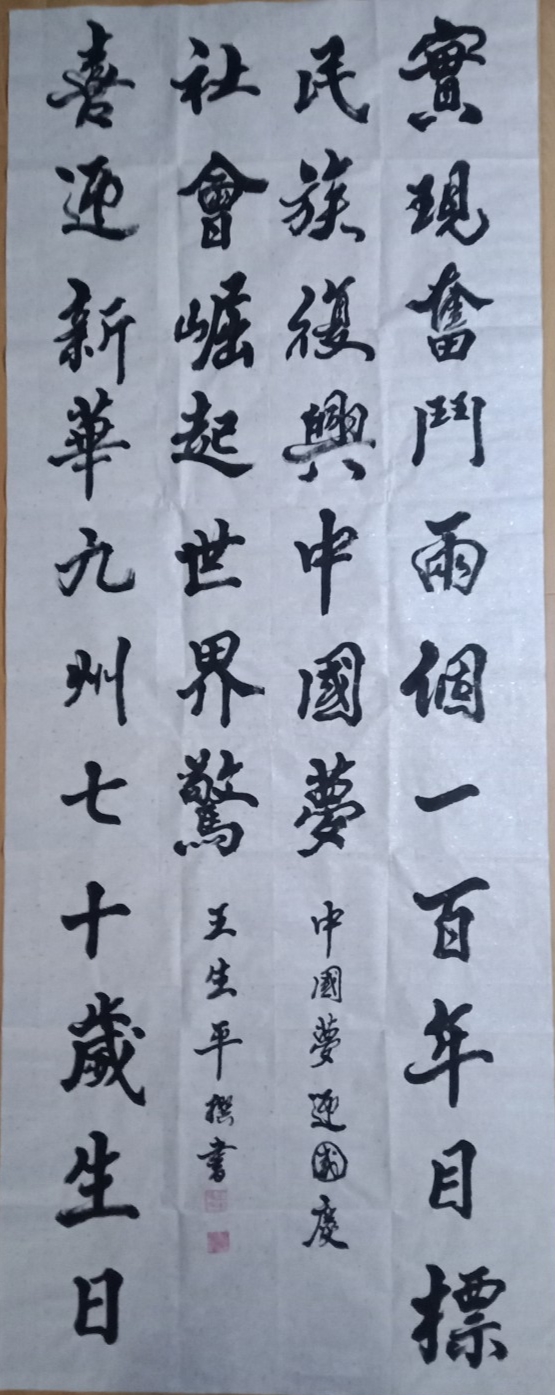 實現奮鬥兩個一百年目標
民族復興中國夢
中國夢迎國慶
社會崛起世界驚
王生平撰書
喜迎新華九州七十歲生日